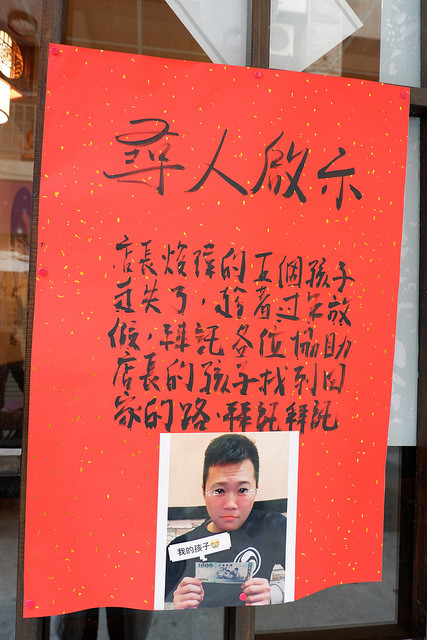 尋人啟示
店長焌瑋的五個孩子
走失了,趁著過年放
假,拜託各位協助
店長的孩子找到回
家的路.拜託拜託
我的孩子
1000